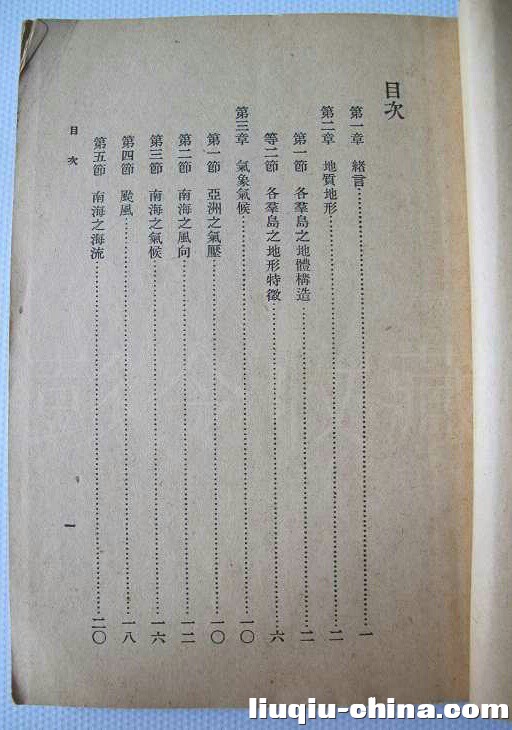 目次
第一章 緒言……一
第二章 地質地形……二
第一節 各羣島之地體構造……二
等二節 各羣島之地形特徵……六
第三章 氣象氣候……一〇
第一節 亞洲之氣壓……一〇
第二節 南海之風向……一二
第三節 南海之氣候……一六
第四節 颱風……一八
第五節 南海之海流……二〇
目 次
一
liuqiu-china.com